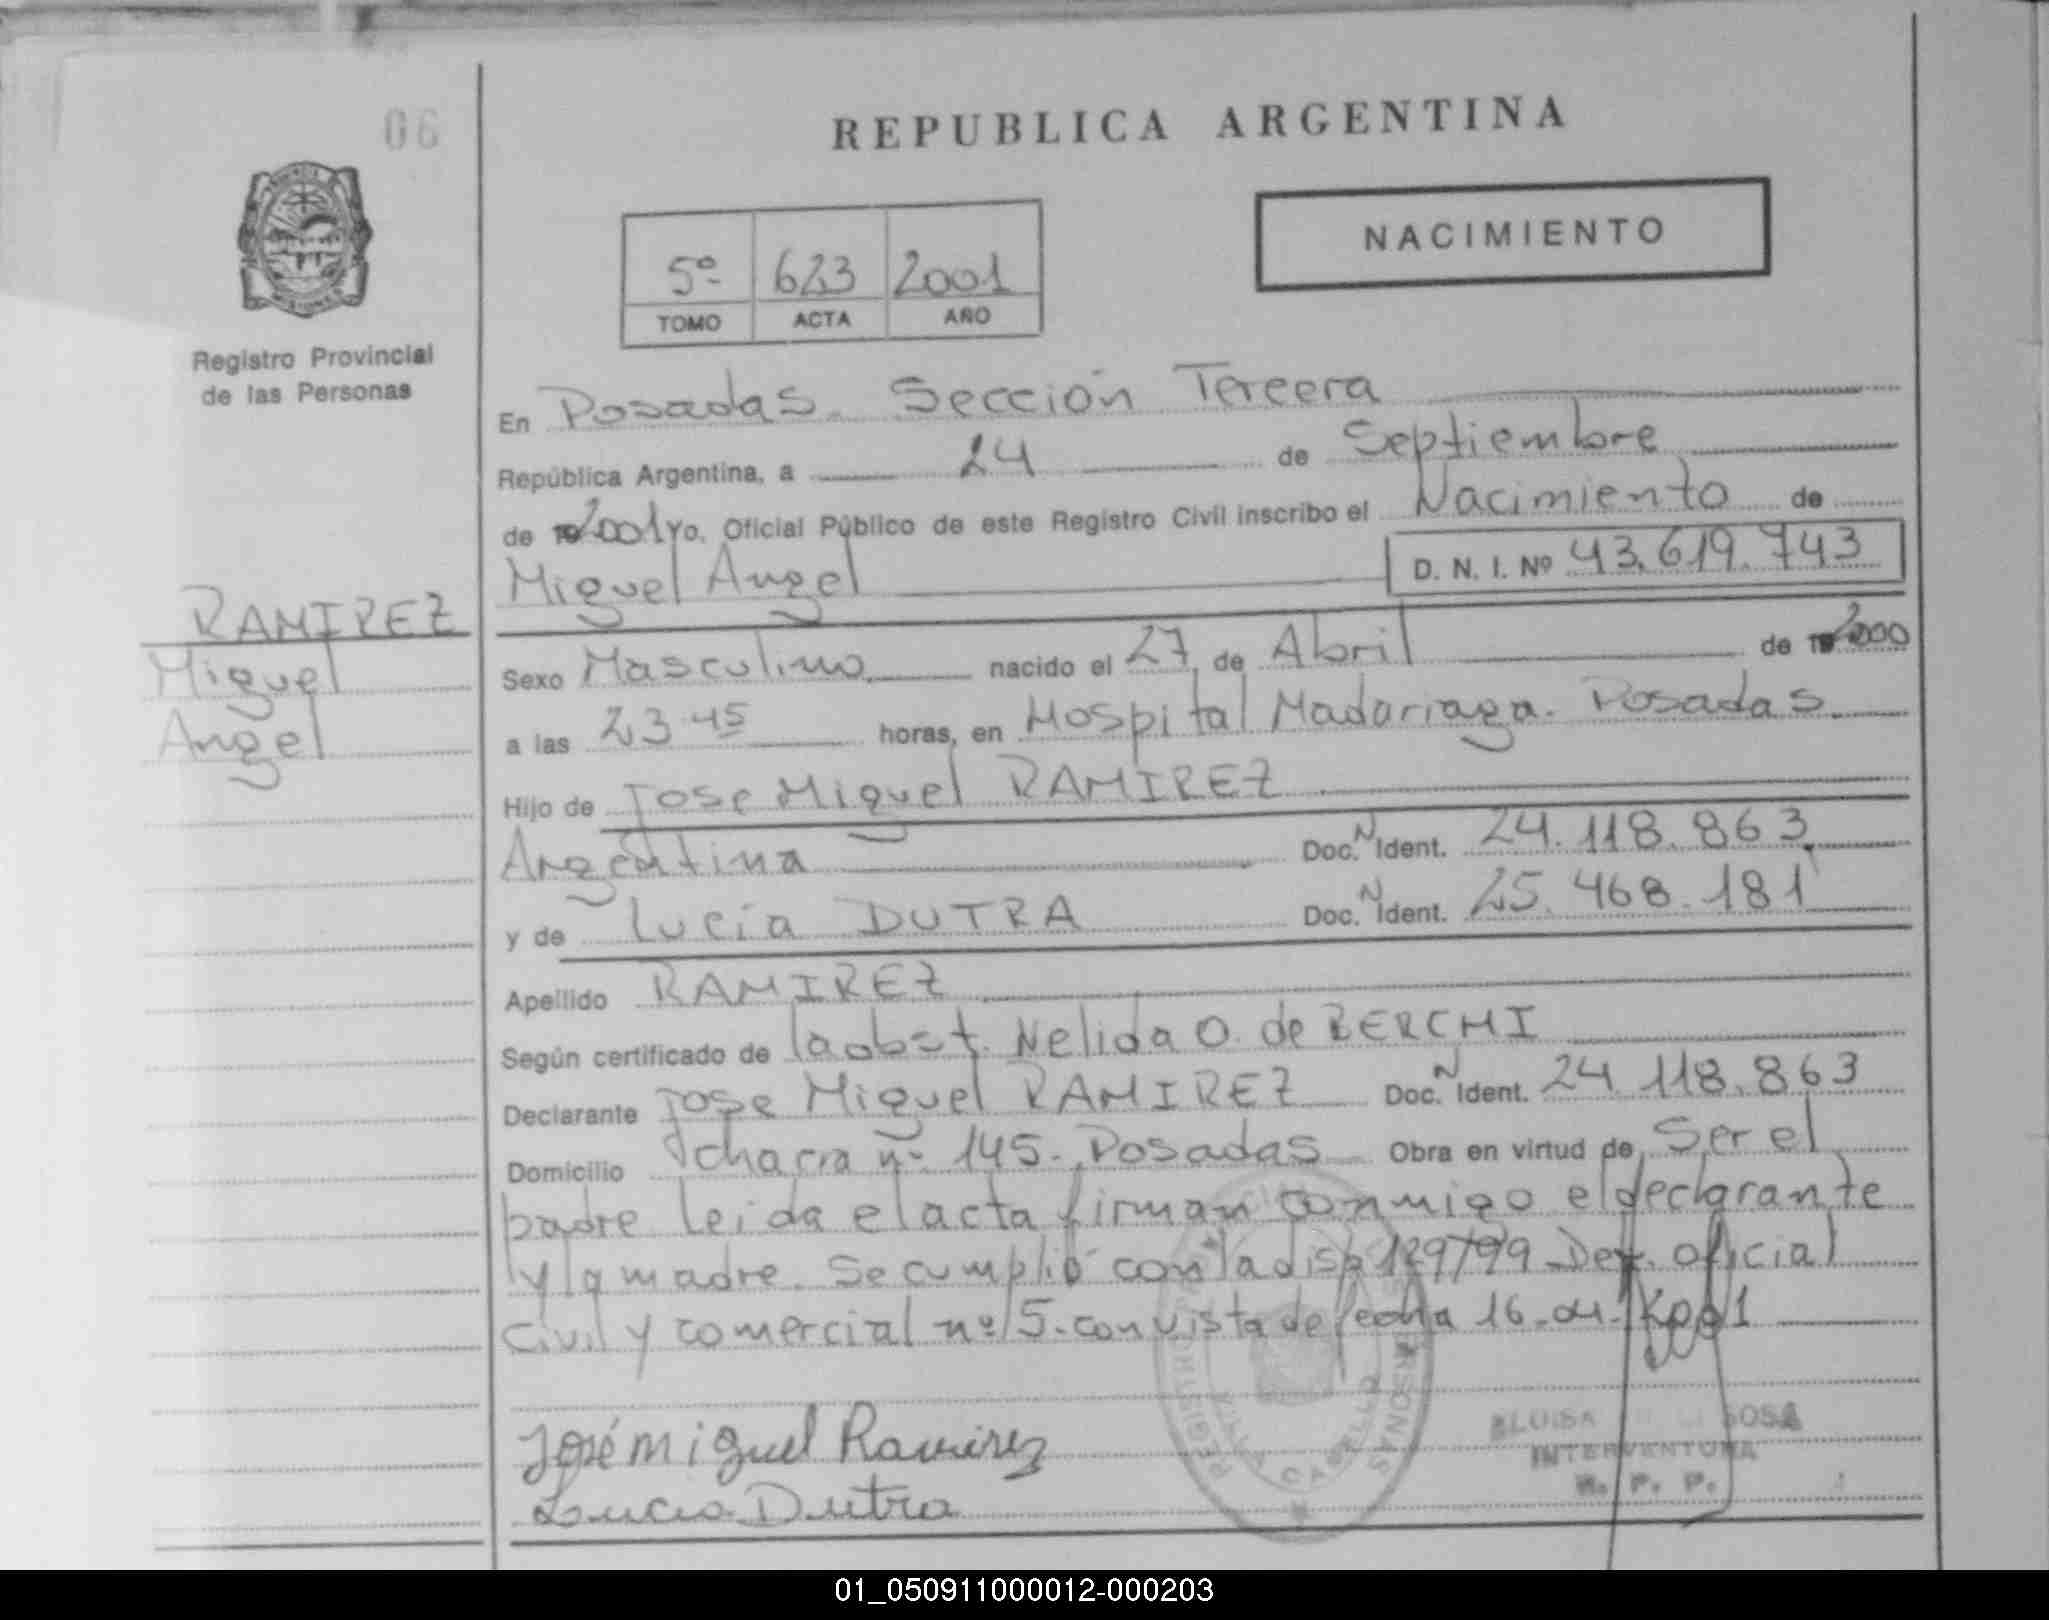 06
REPUBLICA ARGENTINA
NACIMIENTO
5º 623 2001
TOMO ACTA AÑO
Registro Provincial
de las Personas
En Posadas. Sección Tercera
República Argentina, a 24 de Septiembre
de 2001 yo, Oficial Público de este Registro Civil inscribo el Nacimiento de
Miguel Angel D. N. I. Nº 43.619.743
RAMIREZ
Miguel
Angel
Sexo Masculino nacido el 27 de Abril de 2000
a las 23 45 horas, en Hospital Madariaga. Posadas
Hijo de Jose Miguel RAMIREZ
Argentina Doc. N Ident. 24.118.863
y de Lucia DUTRA Doc. N Ident. 25.468.181
Apellido RAMIREZ
Según certificado de la obst. Nelida O. de BERCHI
Declarante Jose Miguel RAMIREZ Doc. N Ident. 24.118.863
Domicilio chacra nº 145. Posadas Obra en virtud de Ser el
padre leida el acta firman conmigo el declarante
y la madre. Se cumplió con la disp 129/99 Def. oficial
Civil y comercial nº 5. con vista de fecha 16.04.
José miguel Ramirez
Lucia Dutra
VILLA CABELLO
SOSA
INTERVENTORA
R. P. P.
01_050911000012-000203